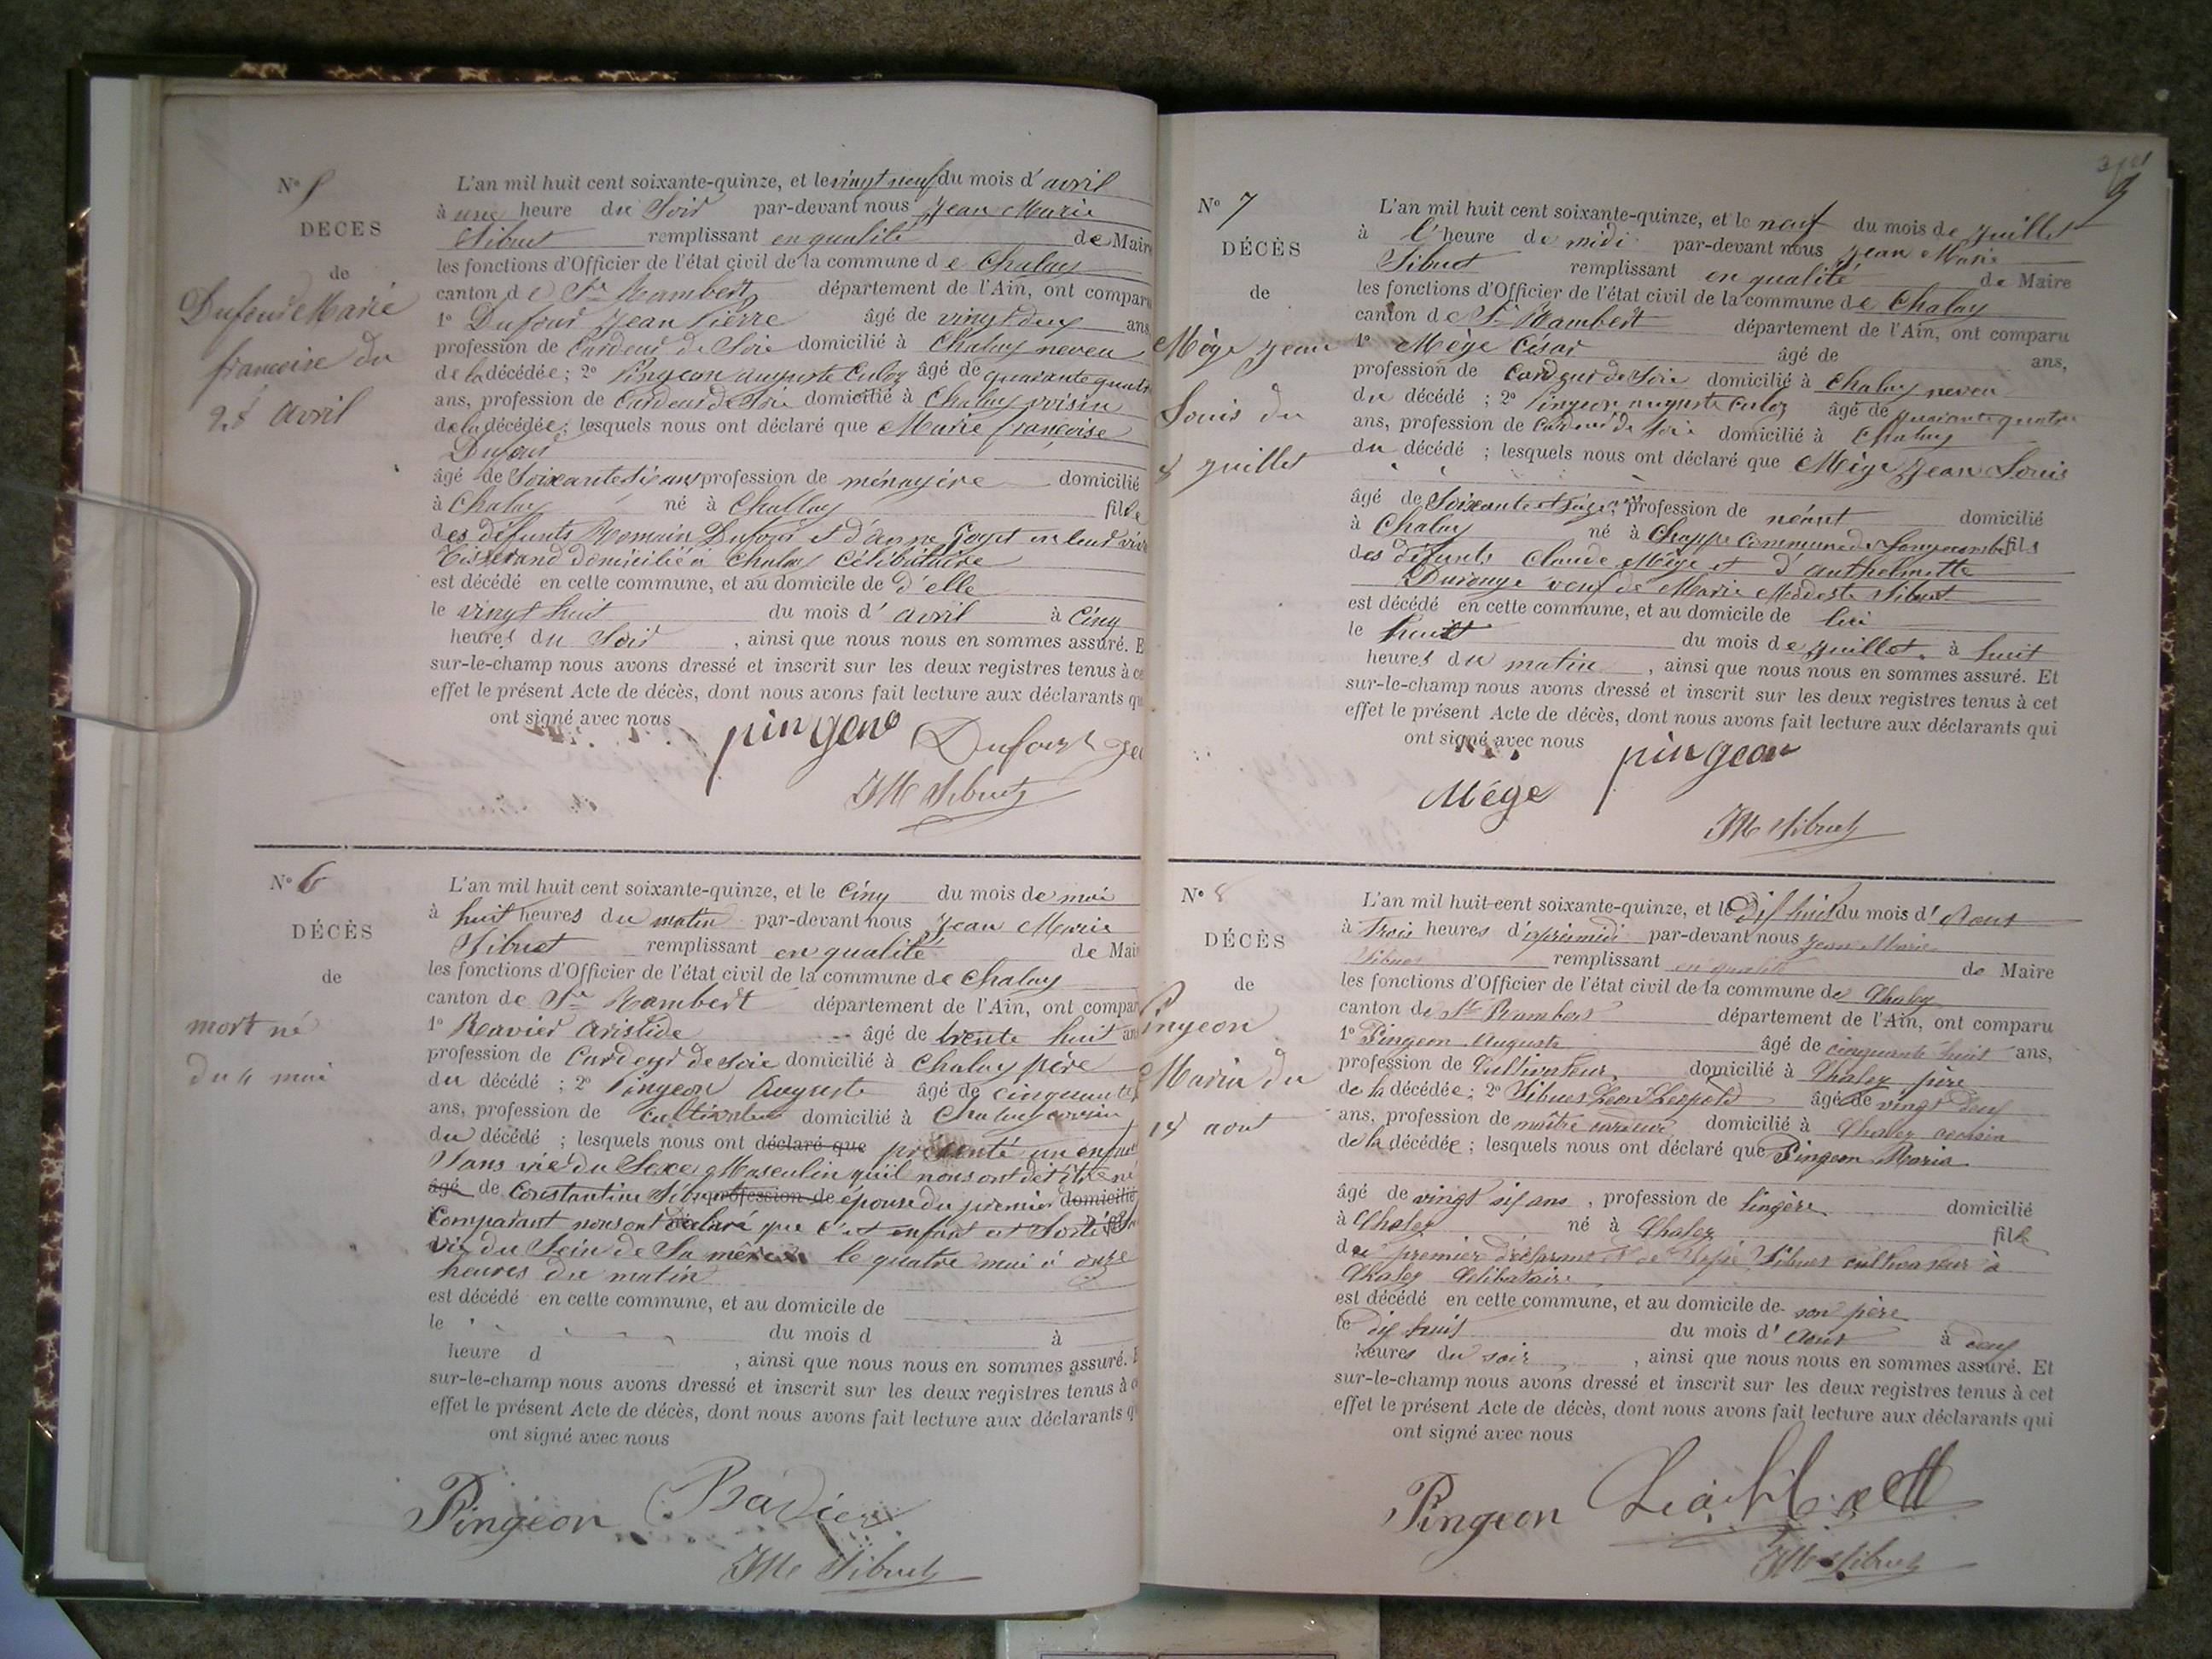 N° 5
DECES
de
Dufour Marie
francoise du
28 avril
L'an mil huit cent soixante-quinze, et le vingt neuf du mois d' avril
à une heure du Soir par-devant nous Jean Marie
Sibuet remplissant en qualité de Maire
les fonctions d'Officier de l'état civil de la commune de Chaley
canton de St Rambert département de l'Ain, ont comparu
1° Dufour Jean Pierre âgé de vingt deux ans
profession de Cardeur de Soie domicilié à Chaley neveu
de la décédée; 2° Pingeon auguste Culoz âgé de quarante quatre
ans, profession de Cardeur de Soie domicilié à Chaley voisin
de la décédée; lesquels nous ont déclaré que Marie françoise
Dufour
âgé de Soixante six ans profession de ménagère domicilié
à Chaley né à Challey fille
des défunts Romain Dufour et d'anne Goyet en leur viv
Tisserand domicilié à Chaley Célibataire
est décédé en cette commune, et au domicile de d'elle
le vingt huit du mois d' avril à Cinq
heures du Soir , ainsi que nous nous en sommes assuré. E
sur-le-champ nous avons dressé et inscrit sur les deux registres tenus à ce
effet le présent Acte de décès, dont nous avons fait lecture aux déclarants qu
ont signé avec nous
pingeon Dufour Jea
JM Sibuet
N° 6
DÉCÈS
de
mort né
du 4 mai
L'an mil huit cent soixante-quinze, et le Cinq du mois de mai
à huit heures du matin par-devant nous Jean Marie
Sibuet remplissant en qualité de Mair
les fonctions d'Officier de l'état civil de la commune de Chaley
canton de St Rambert département de l'Ain, ont compar
1° Ravier Aristide âgé de trente huit ans
profession de Cardeur de soie domicilié à Chaley père
du décédé ; 2° Pingeon Auguste âgé de cinquante
ans, profession de Cultivateur domicilié à Chaley
du décédé ; lesquels nous ont déclaré que présenté un enfant
Sans vie du Sexe Masculin qu'il nous ont dit être né
âgé de Constantine Sibuet profession de épouse du premier domicilié
Comparant nous ont déclaré que c'et enfant est Sorti
vie du Sein de Sa mère le quatre mai à onze
heures du matin
est décédé en cette commune, et au domicile de
le du mois d à
heure d , ainsi que nous nous en sommes assuré. E
sur-le-champ nous avons dressé et inscrit sur les deux registres tenus à c
effet le présent Acte de décès, dont nous avons fait lecture aux déclarants q
ont signé avec nous
Pingeon Ravier
JM Sibuet
9
N° 7
DÉCÈS
de
Mège Jean
Louis du
8 juillet
L'an mil huit cent soixante-quinze, et le neuf du mois de Juillet
à l' heure de midi par-devant nous Jean Marie
Sibuet remplissant en qualité de Maire
les fonctions d'Officier de l'état civil de la commune de Chaley
canton de St Rambert département de l'Ain, ont comparu
1° Mège César âgé de ans,
profession de Cardeur de Soie domicilié à Chaley neveu
du décédé ; 2° Pingeon auguste Culoz âgé de quarante quatre
ans, profession de Cardeur de Soie domicilié à Chaley
du décédé ; lesquels nous ont déclaré que Mège Jean Louis
âgé de Soixante et seize ans, profession de néant domicilié
à Chaley né à Chappe Commune de Longecombe fils
des défunts Claude Mège et d'anthelmette
Durouge veuf de Marie Modeste Sibuet
est décédé en cette commune, et au domicile de lui
le huit du mois de juillet à huit
heures du matin , ainsi que nous nous en sommes assuré. Et
sur-le-champ nous avons dressé et inscrit sur les deux registres tenus à cet
effet le présent Acte de décès, dont nous avons fait lecture aux déclarants qui
ont signé avec nous
pingeon
Mége
JM Sibuet
N° 8
DÉCÈS
de
Pingeon
Maria du
18 aout
L'an mil huit cent soixante-quinze, et le Dix huit du mois d' Aout
à Trois heures d'après midi par-devant nous Jean Marie
Sibuet remplissant en qualité de Maire
les fonctions d'Officier de l'état civil de la commune de Chaley
canton de St Rambert département de l'Ain, ont comparu
1° Pingeon Auguste âgé de cinquante huit ans,
profession de Cultivateur domicilié à Chaley père
de la décédée; 2° Sibuet Léon Léopold âgé de vingt deux
ans, profession de maître cardeur domicilié à Chaley cousin
de la décédée ; lesquels nous ont déclaré que Pingeon Maria
âgé de vingt six ans , profession de lingère domicilié
à Chaley né à Chaley fille
du premier déclarant et de Sibuet cultivateur à
Chaley Célibataire
est décédé en cette commune, et au domicile de son père
le dix huit du mois d' Aout à deux
heures du soir , ainsi que nous nous en sommes assuré. Et
sur-le-champ nous avons dressé et inscrit sur les deux registres tenus à cet
effet le présent Acte de décès, dont nous avons fait lecture aux déclarants qui
ont signé avec nous
Pingeon
JM Sibuet